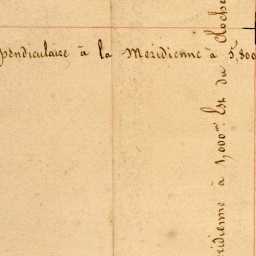 pendiculaire à la Meridienne à 5,500
ridienne à 1,000.m Est du Cloche